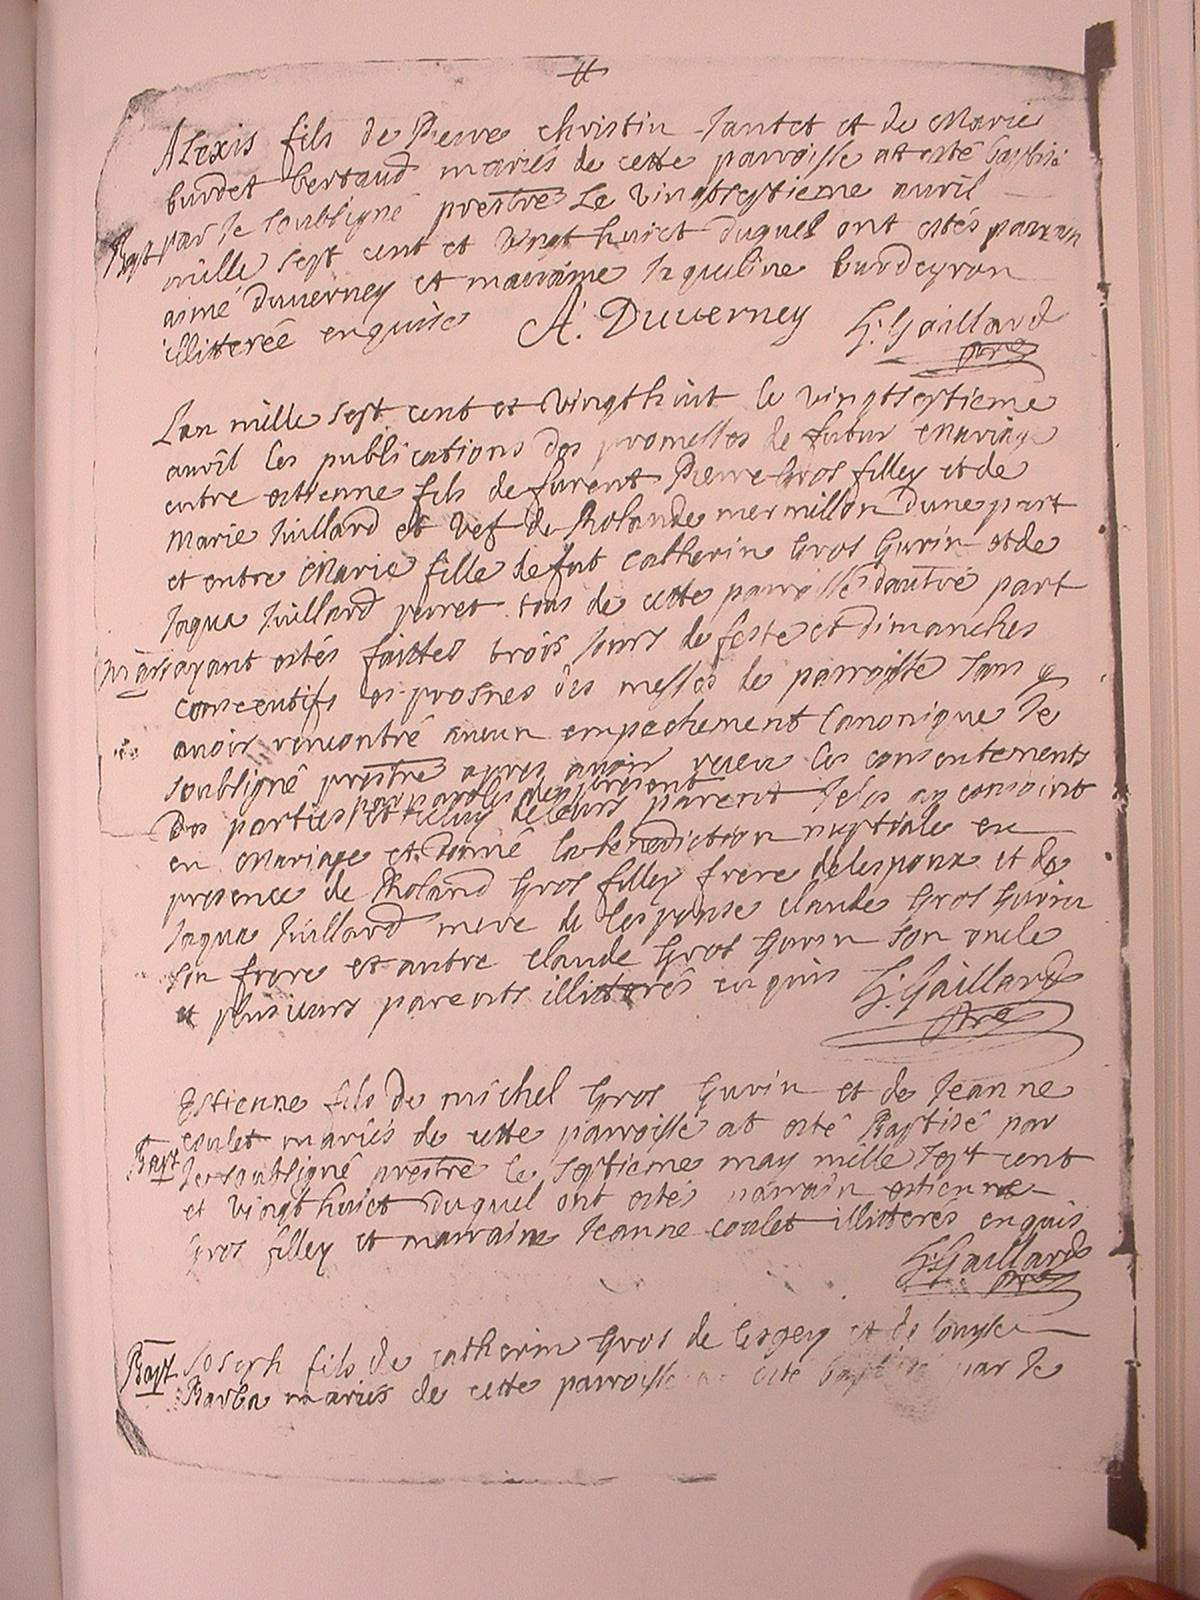 Alexis fils de Pierre christin Jantet et de Marie
burdet bertaud mariés de cette parroisse at esté baptisé
Bapt par Je soubsigné prestre Le vingtseptieme auril
mille sept cent et vingt huict duquel ont estés parrain
aimé Duuerney et marraine Jaqueline burdeyron
illitterée enquise A. Duuerney G. Gaillard
pre
Lan mille sept cent et vingthuit le vingtseptieme
auril les publications des promesses de futur Mariage
entre estienne fils de furent Pierre Gros filley et de
Marie Juillard et vef de Rolande mermillon dune part
et entre Marie fille de fut Catherin Gros Gurin et de
Jaqua Juillard perret tous de cette parroisse dautre part
Mar ayant estés faittes trois Jours de feste et dimanches
consecutifs es prosnes des messes de parroisse sans q
auoir rencontré aucun empechement Canonique Je
soubsigné prestre apres auoir receu les consentements
par parolles de present
Des parties et celuy de leurs parent Je les ay conioint
en Mariage et donné la benediction nuptiale en
presence de Roland Gros filley frere de lespoux et de
Jaqua Juillard mere de lespouse claude Gros Gurin
son frere et autre claude Gros Gurin son oncle
et plusieurs parents illitterés enquis G. Gaillard
pre
Estienne fils de michel Gros Gurin et de Jeanne
coulet mariés de cette parroisse at esté Baptisé par
Bapt Je soubsigné prestre le septieme may mille sept cent
et vingt huict duquel ont estés parrain estienne
Gros filley et marraine Jeanne coulet illitterés enquis
G. Gaillard
pre
Bapt Joseph fils de catherin Gros de lespey et de louyse
Barba mariés de cette parroisse esté baptisé par Je